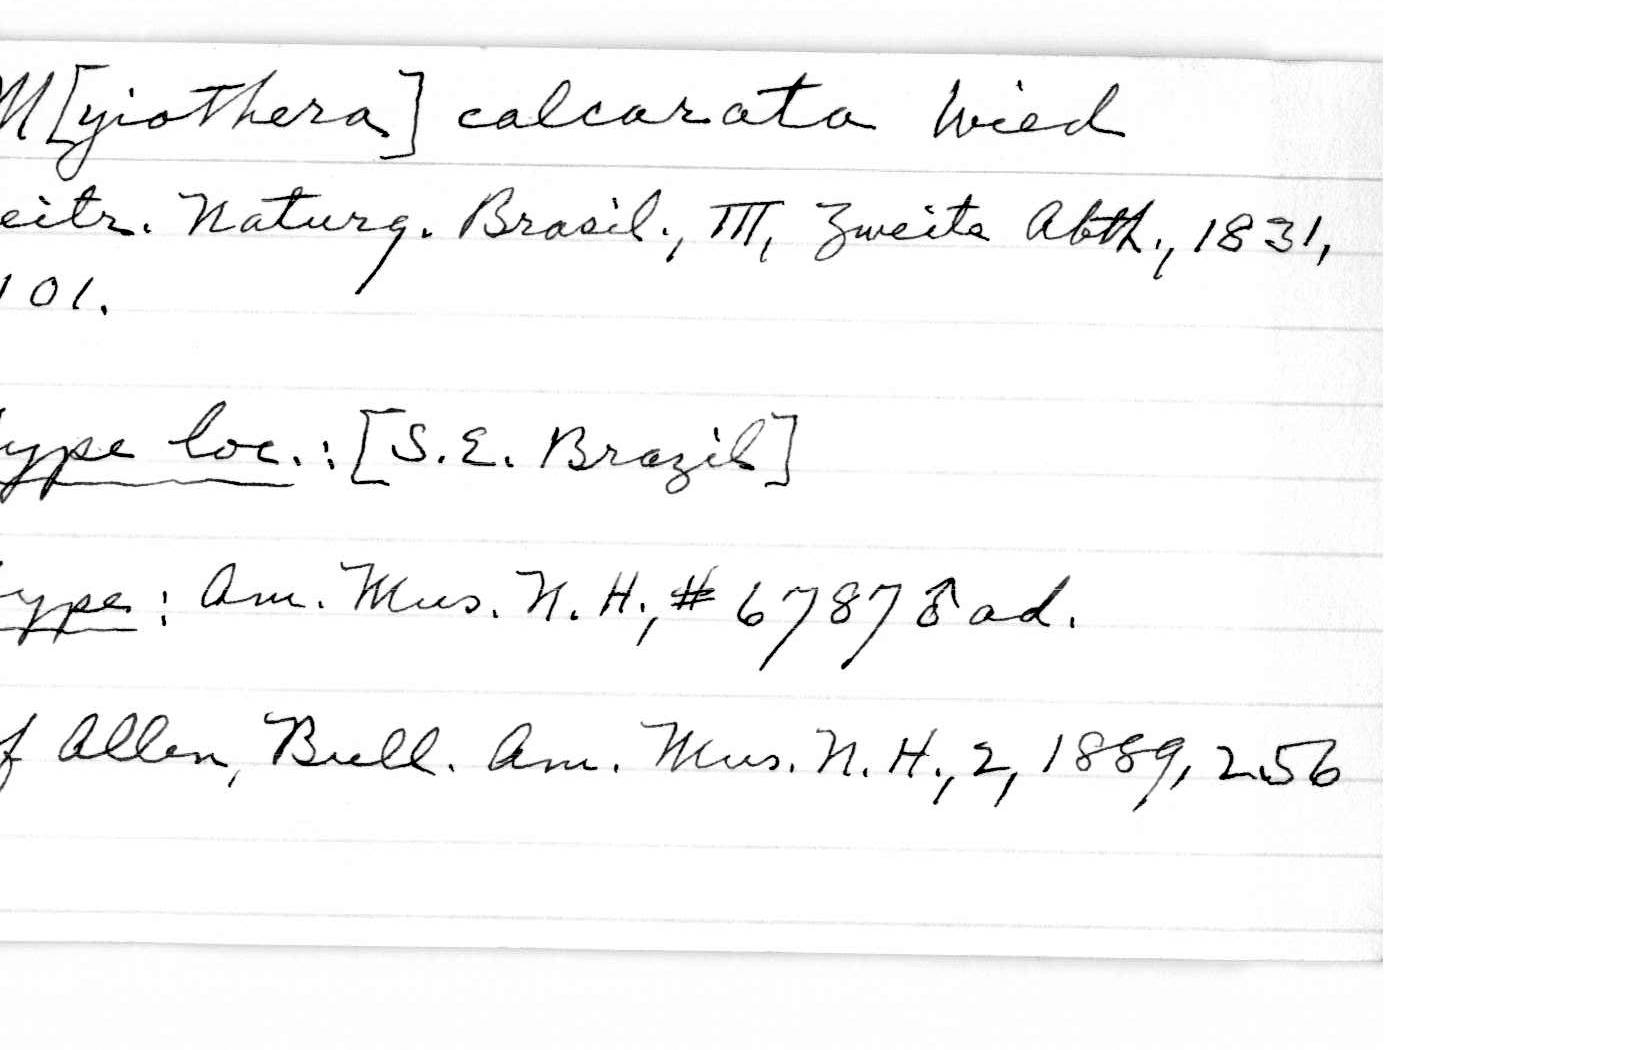 M[yiothera] calcarata Wied
eitr. Naturg. Brasil., III, Zweite Abth., 1831,
101.
ype loc.: [S.E. Brazil]
ype: Am. Mus. N. H., # 6787 ♂ ad.
f Allen, Bull. Am. Mus. N. H., 2, 1889, 256